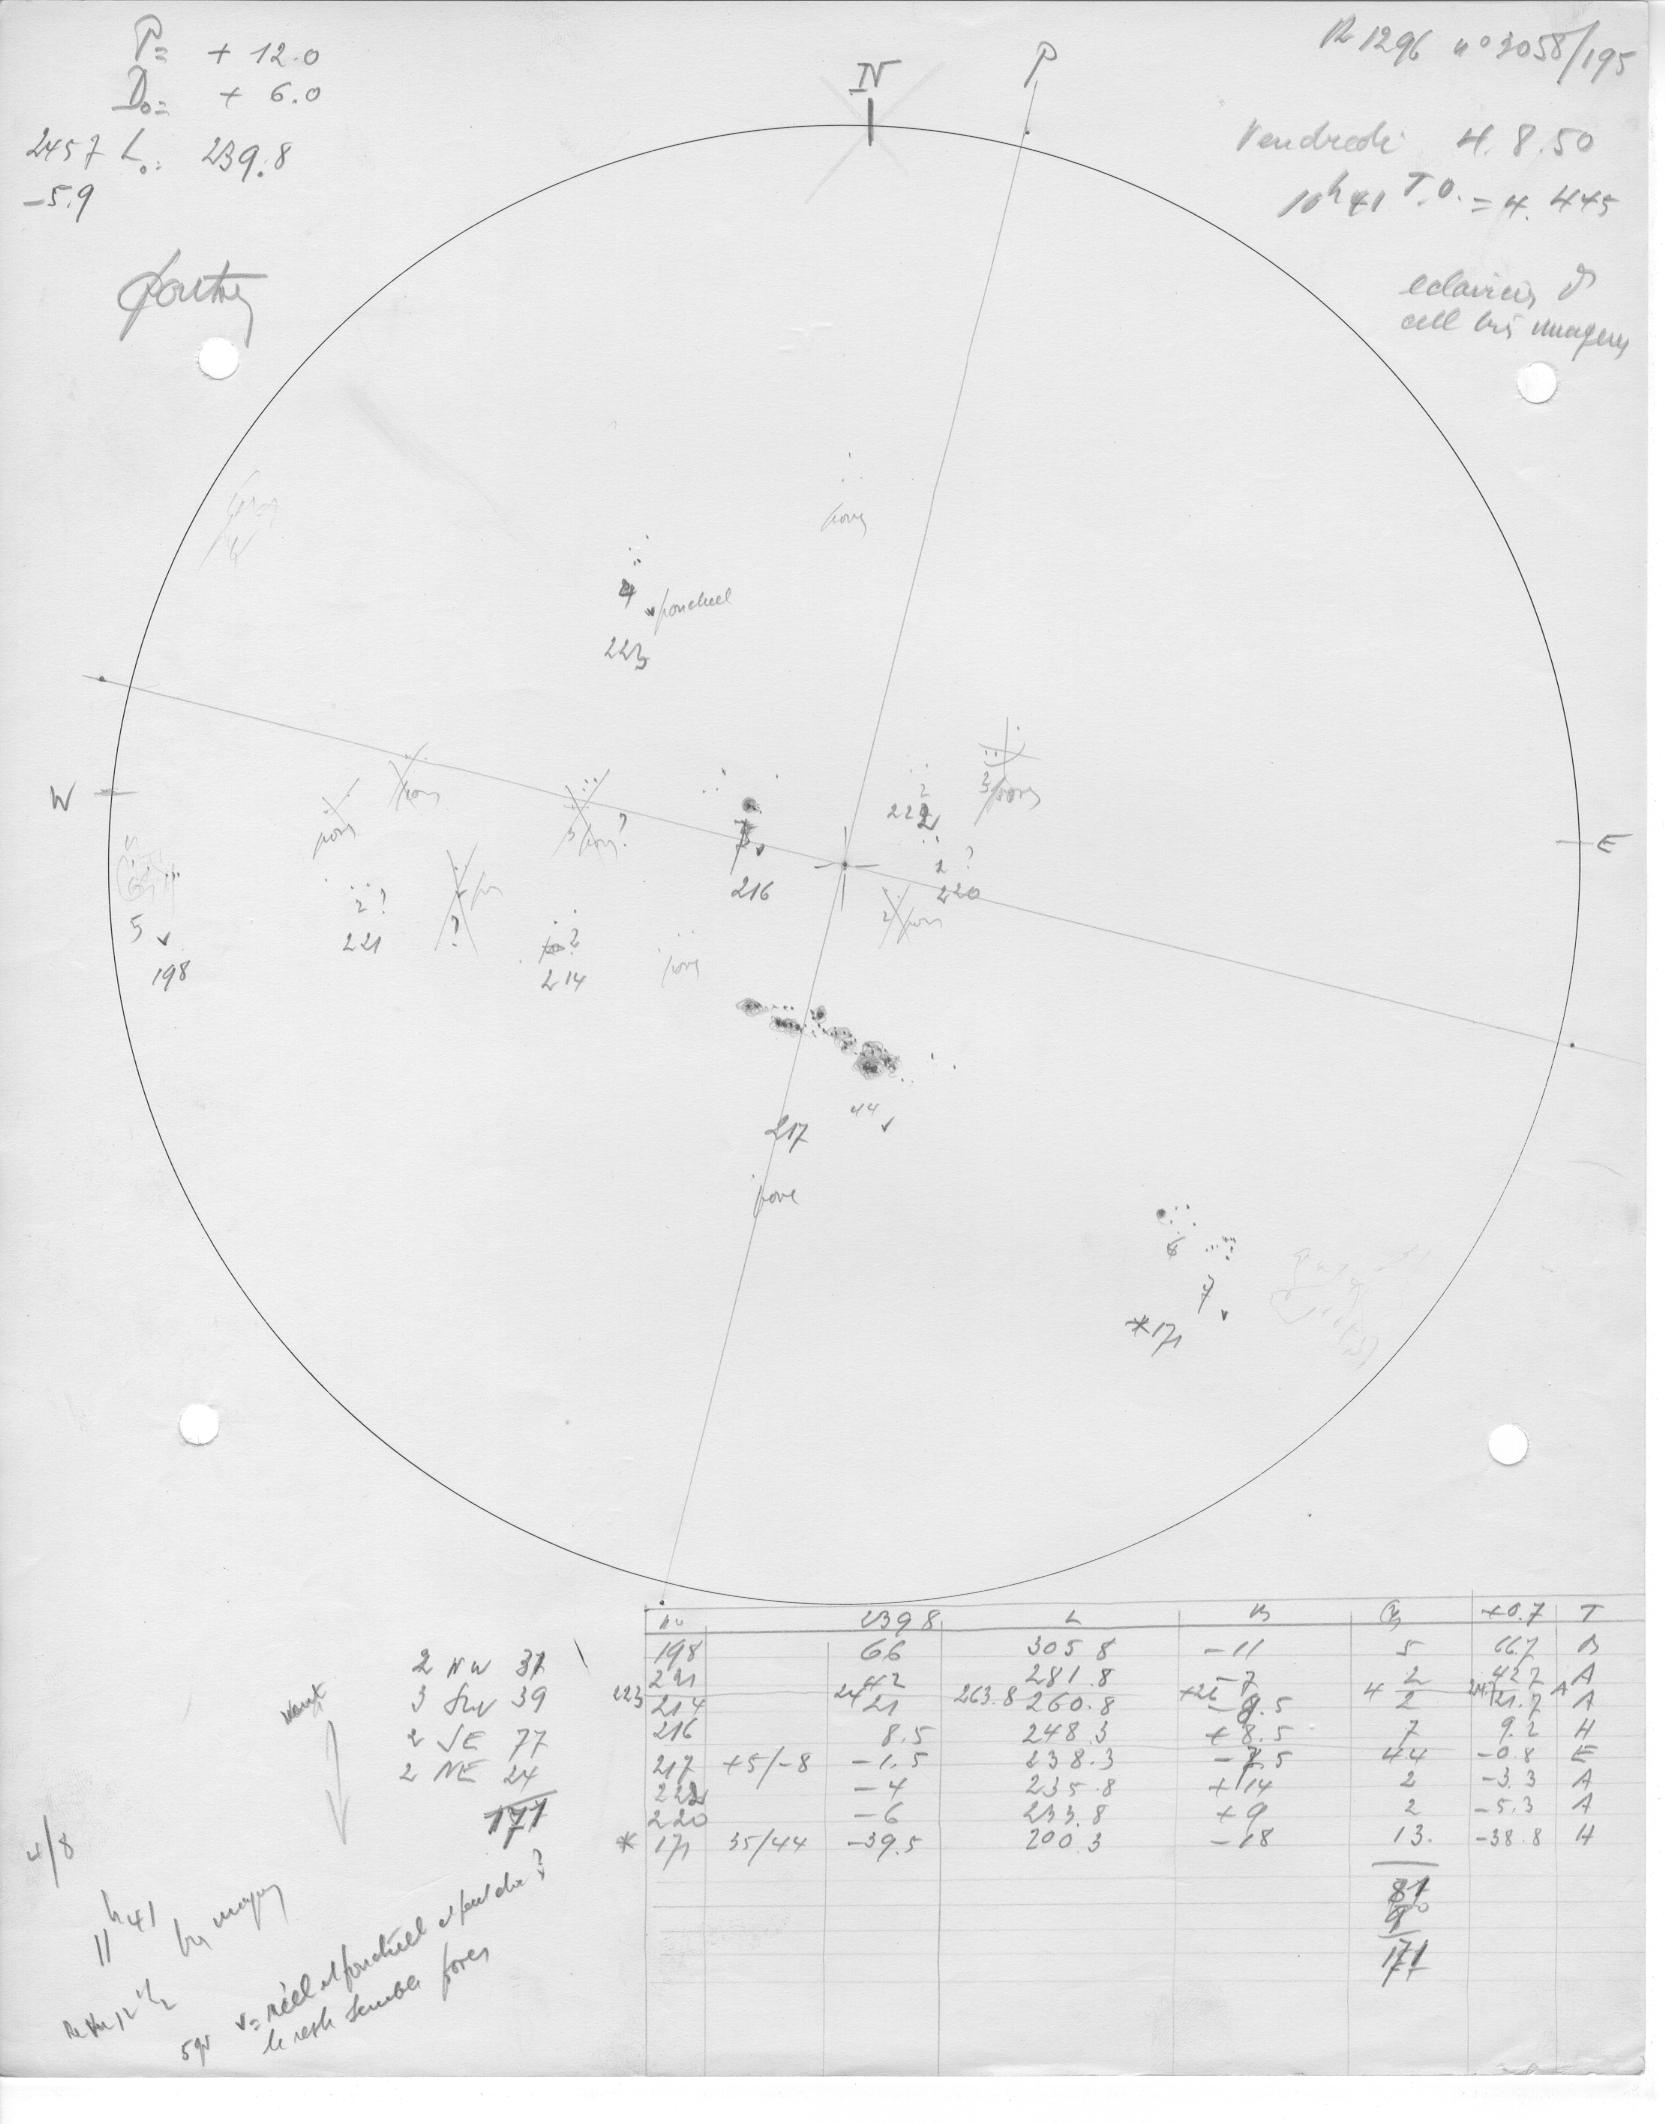 P= + 12.0
D₀= + 6.0
2457 L₀= 239.8
-5.9
N
P
R 1296 n° 3058/195
Vendredi 4.8.50
10h41 T.U. = 4.445
eclaircies
ciel très nuageux
pores
4
ponctuel
223
W
E
pores
pores
3 pores?
7
216
2
222
3 pores
2 ?
220
2 pores
5
198
2 ?
221
?
2
214
pores
44
217
pore
6
7
*171
no 239.8 L B G +0.7 T
198 66 305.8 -11 5 66.7 B
221 42 281.8 -7 2 42.7 A
223 24 263.8 +26 4 A
214 21 260.8 -8.5 2 21.7 A
216 8.5 248.3 +8.5 7 9.2 H
217 +5/-8 -1.5 238.3 -7.5 44 -0.8 E
222 -4 235.8 +14 2 -3.3 A
220 -6 233.8 +9 2 -5.3 A
* 171 35/44 -39.5 200.3 -18 13. -38.8 H
81
9
171
2 NW 31
3 SW 39
2 SE 77
2 NE 24
171
4/8
11h41 très nuageux
v = réel et ponctuel
le reste semble pores